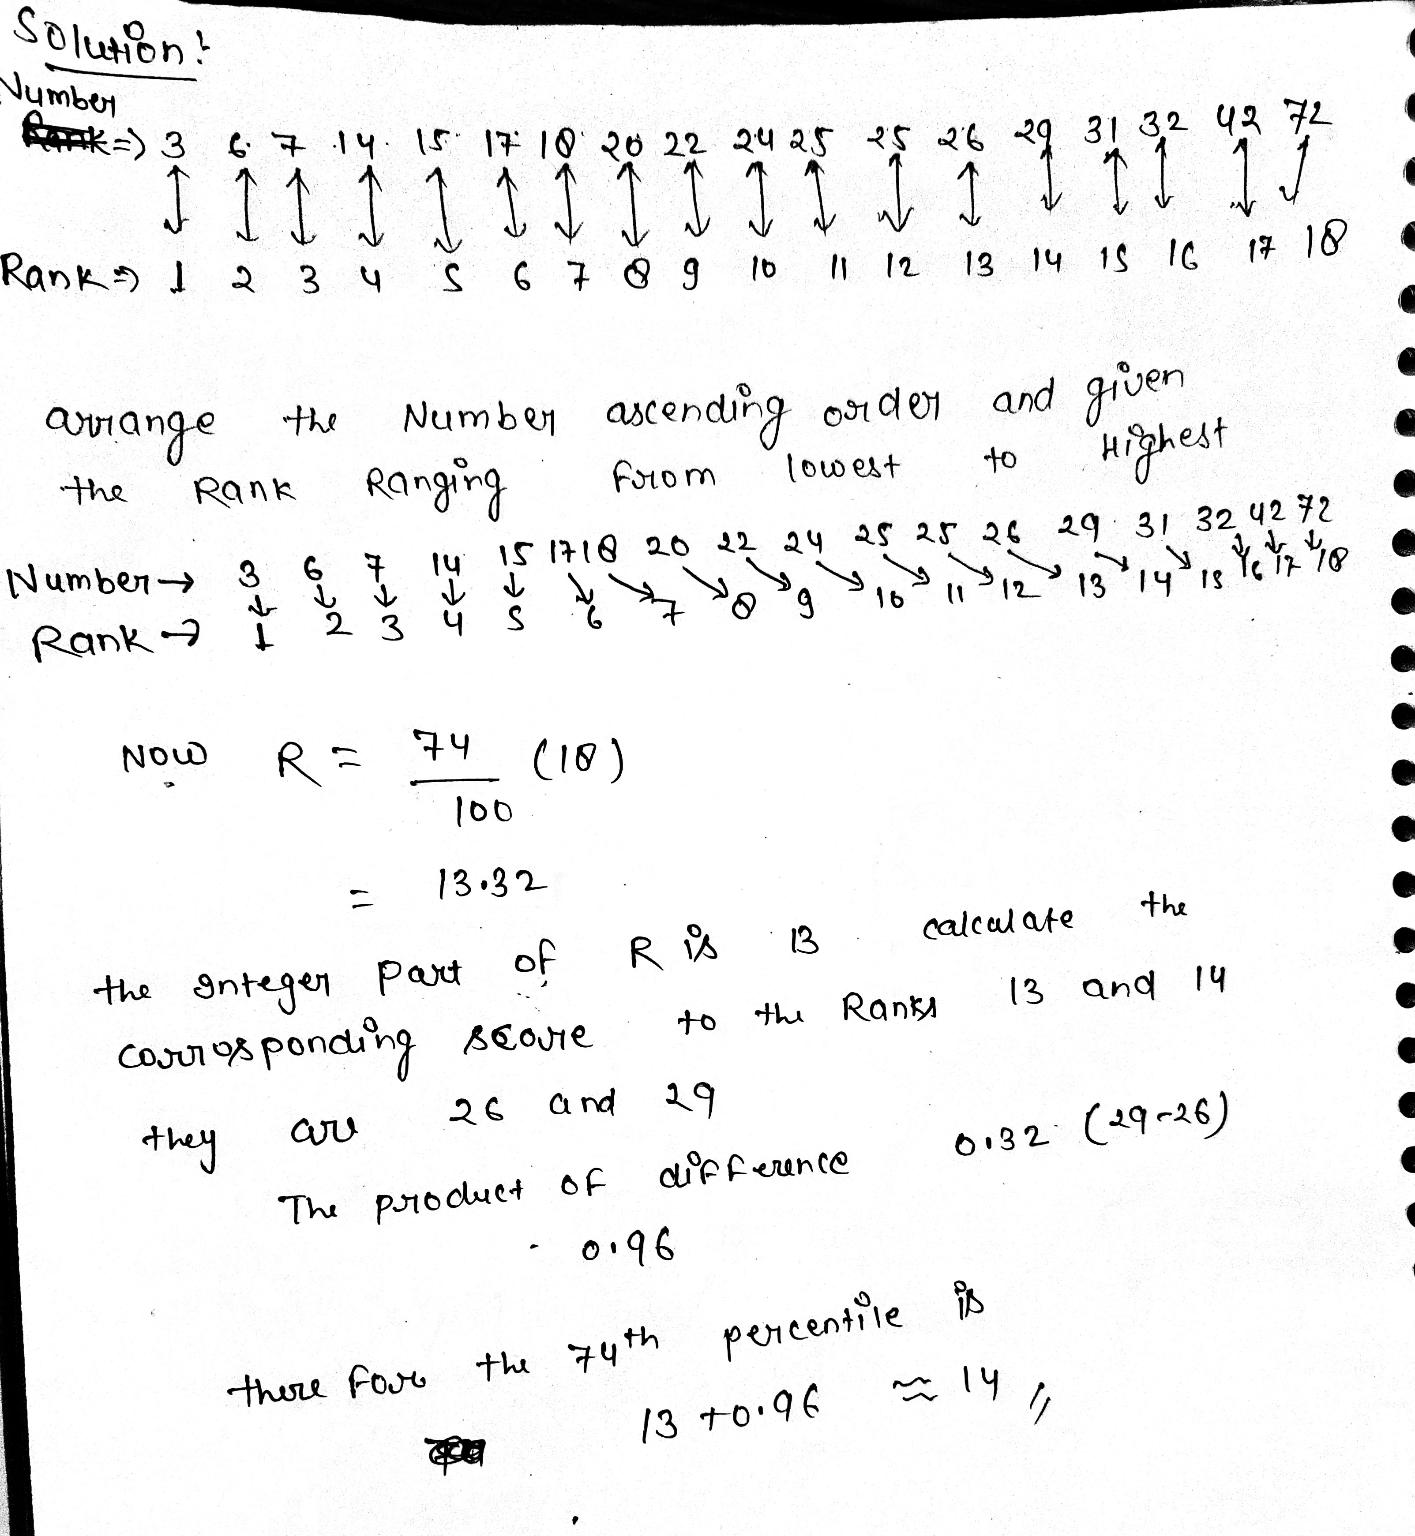 Solution:
Number
Rank => 3 6 7 14 15 17 18 20 22 24 25 25 26 29 31 32 42 72
Rank => 1 2 3 4 5 6 7 8 9 10 11 12 13 14 15 16 17 18
arrange the Number ascending order and given
the Rank Ranging from lowest to Highest
Number → 3 6 7 14 15 17 18 20 22 24 25 25 26 29 31 32 42 72
Rank → 1 2 3 4 5 6 7 8 9 10 11 12 13 14 15 16 17 18
Now R = 74/100 (18)
= 13.32
the Integer part of R is 13 calculate the
corrosponding score to the Ranks 13 and 14
they are 26 and 29
The product of difference 0.32 (29-26)
0.96
there fore the 74th percentile is
13 +0.96 ≈ 14 //